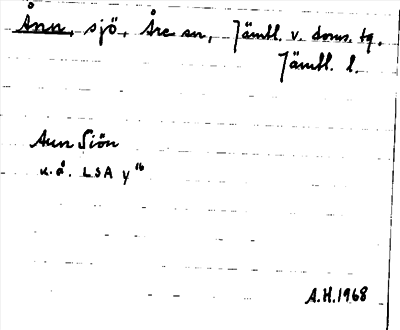 Ånn, sjö, Åre sn, Jämtl. v. doms. tg.
Jämtl. l.
Aun Siön
u.å. LSA y 16
A.H. 1968